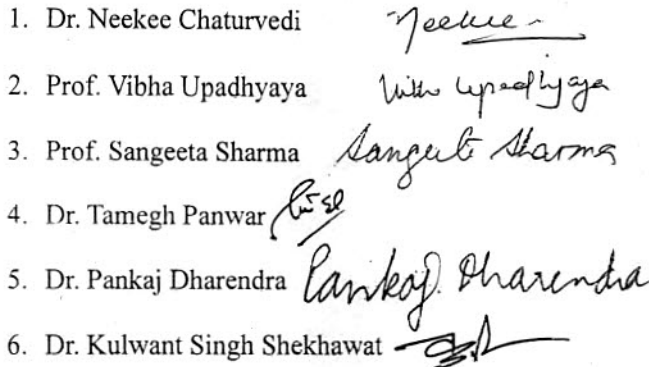 1. Dr. Neekee Chaturvedi Neekee
2. Prof. Vibha Upadhyaya Vibha Upadhyaya
3. Prof. Sangeeta Sharma Sangeeta Sharma
4. Dr. Tamegh Panwar
5. Dr. Pankaj Dharendra Pankaj Dharendra
6. Dr. Kulwant Singh Shekhawat